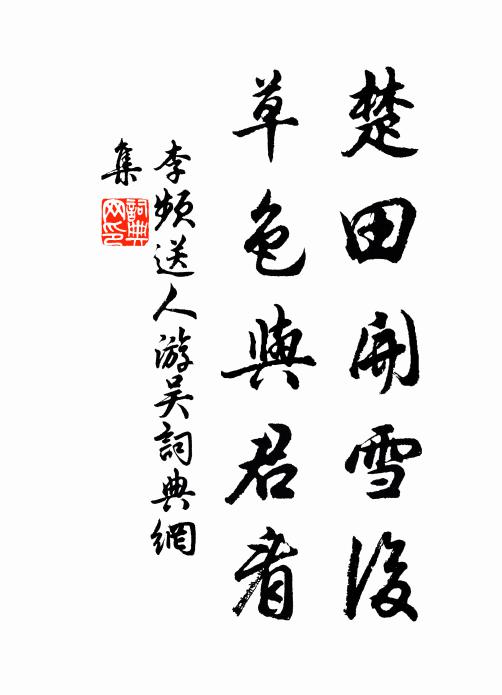 楚田開雪後
草色與君看
李頻送人游吳詞典網
集
詞典
网印